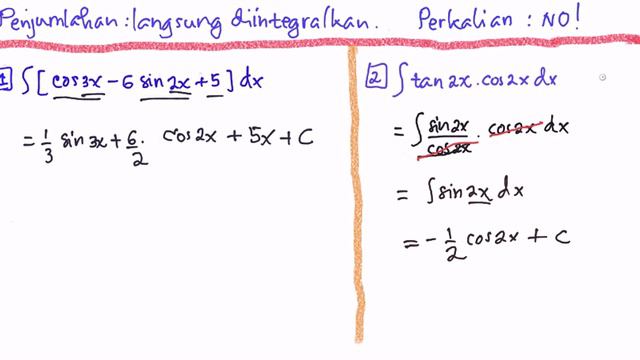 Penjumlahan : langsung diintegralkan. Perkalian : NO!
1 ∫ [cos 3x - 6 sin 2x + 5] dx
= 1/3 sin 3x + 6/2 . cos 2x + 5x + C
2 ∫ tan 2x . cos 2x dx
= ∫ sin 2x / cos 2x . cos 2x dx
= ∫ sin 2x dx
= - 1/2 cos 2x + C